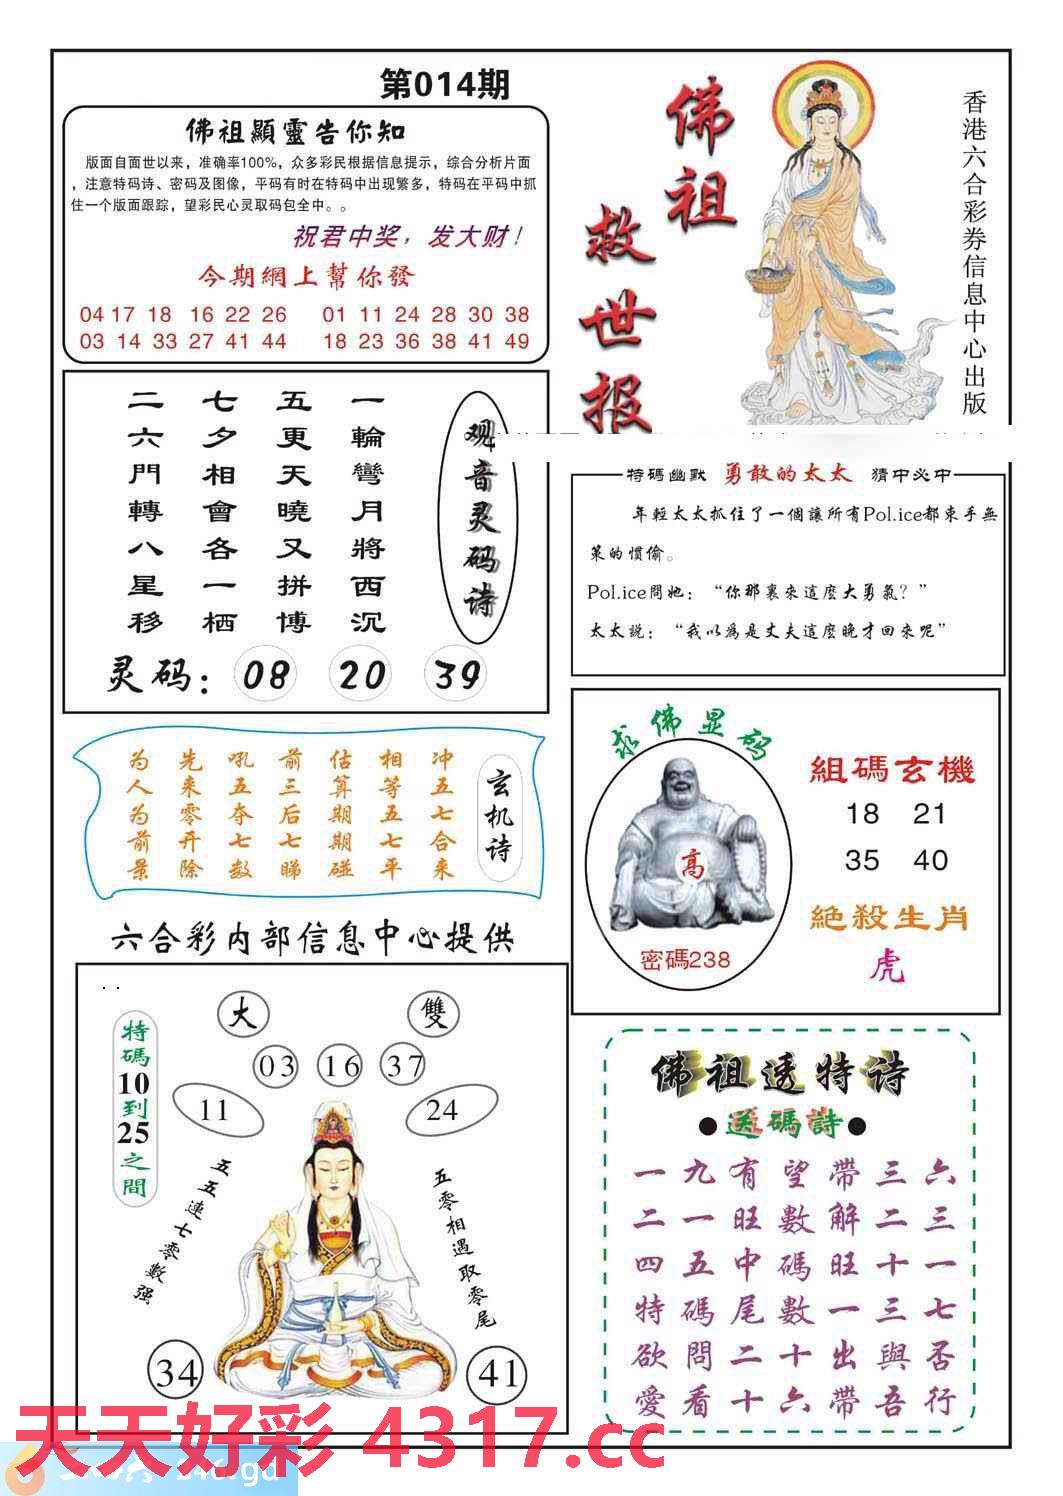 第014期
佛祖顯靈告你知
版面自面世以来，准确率100%，众多彩民根据信息提示，综合分析片面
，注意特码诗、密码及图像，平码有时在特码中出现繁多，特码在平码中抓
住一个版面跟踪，望彩民心灵取码包全中。。
祝君中奖，发大财！
今期網上幫你發
04 17 18 16 22 26 01 11 24 28 30 38
03 14 33 27 41 44 18 23 36 38 41 49
佛祖
救世报
香港六合彩券信息中心出版
观音灵码诗
一輪彎月將西沉
五更天曉又拼博
七夕相會各一栖
二六門轉八星移
灵码：08 20 39
特碼幽默 勇敢的太太 猜中必中
年輕太太抓住了一個讓所有Pol.ice都束手無
策的慣偷。
Pol.ice問她：“你那裏來這麽大勇氣？”
太太説：“我以為是丈夫這麽晚才回來呢”
玄机诗
冲五七合来
相等五七平
估算期期碰
前三后七睇
吼五夺七数
先来零开除
为人为前景
求佛显码
高
密碼238
組碼玄機
18 21
35 40
絕殺生肖
虎
六合彩内部信息中心提供
大
雙
03 16 37
11
24
特碼10到25之間
五五連七零數强
五零相遇取零尾
34
41
佛祖透特诗
●送碼詩●
一九有望帶三六
二一旺數解二三
四五中碼旺十一
特碼尾數一三七
欲問二十出與否
愛看十六帶吾行
天天好彩 4317.cc
246.gd